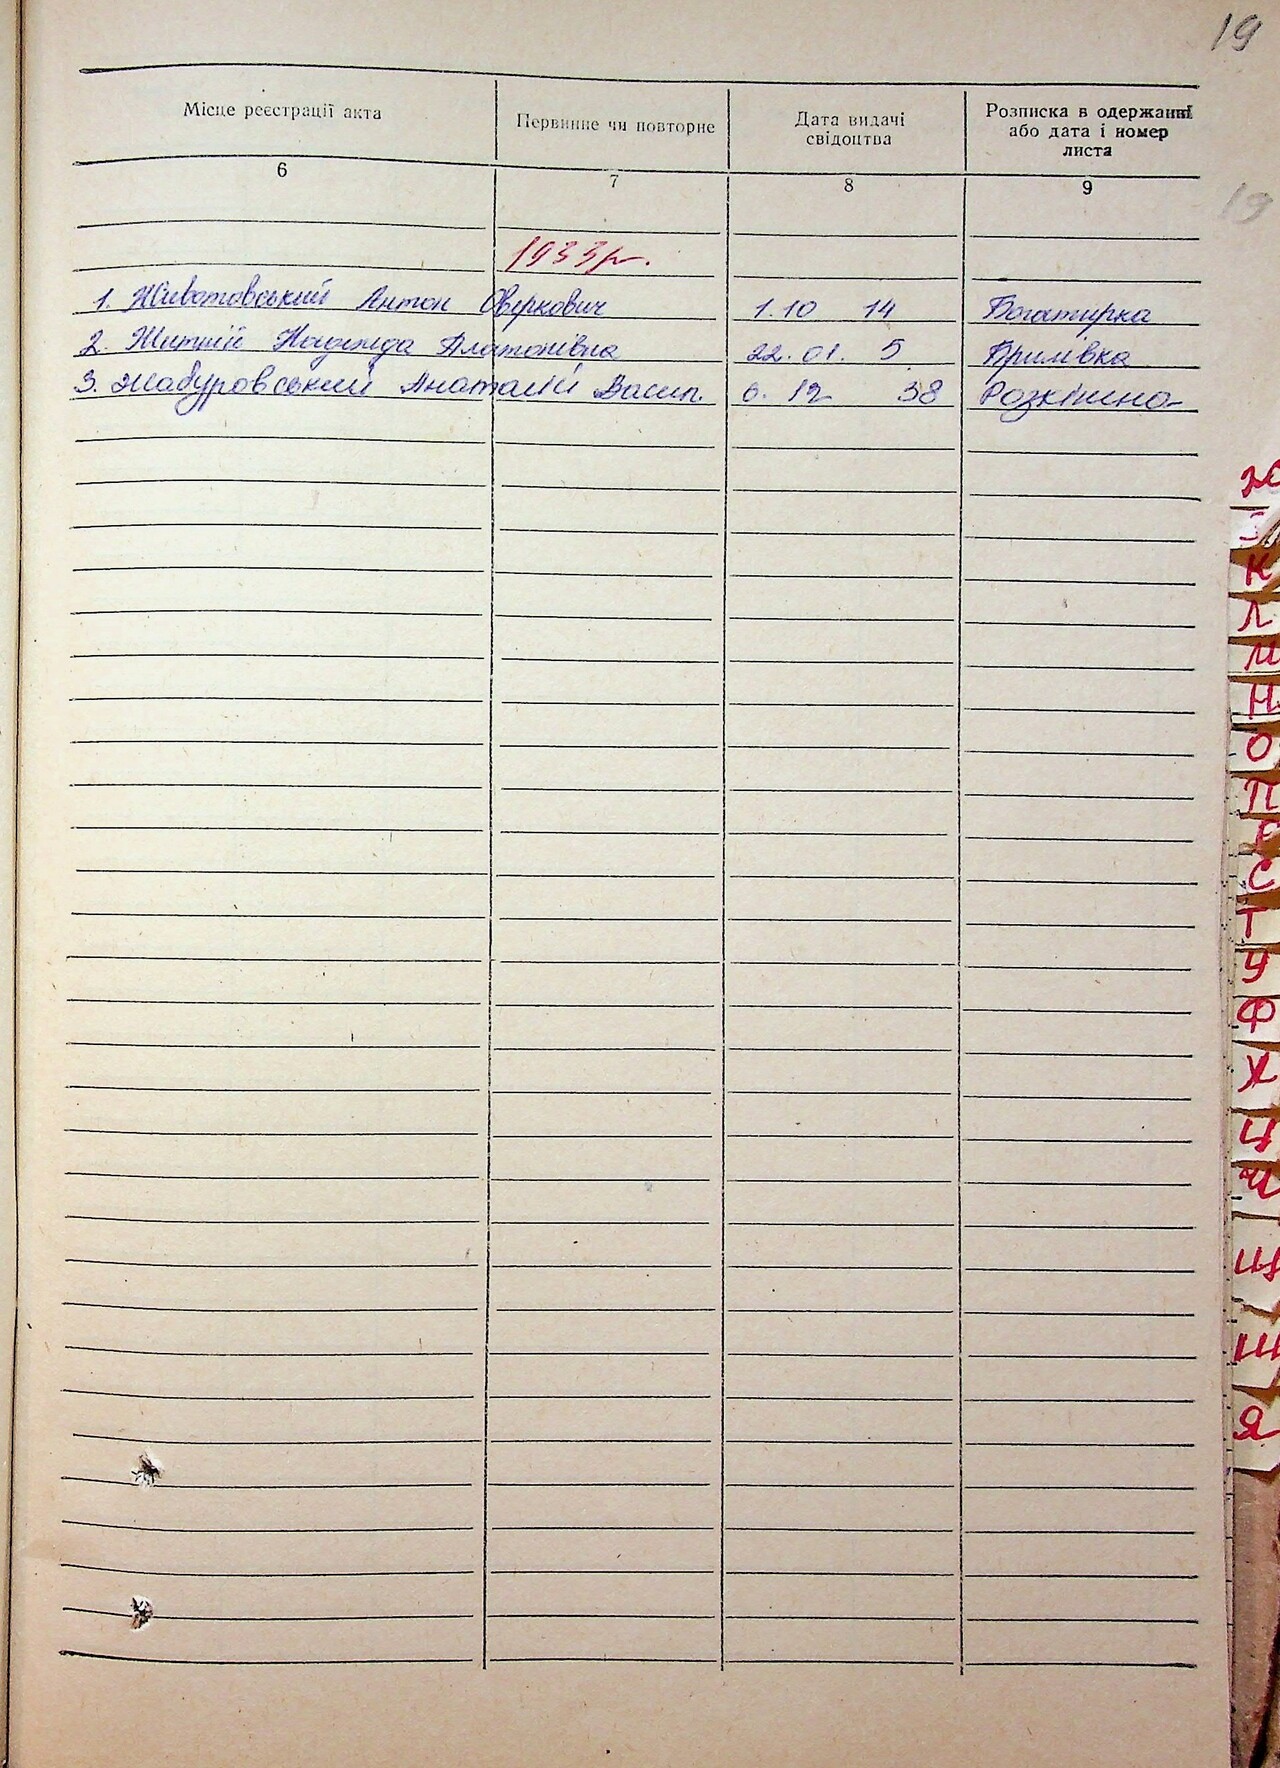 19
Місце реєстрації акта
Первинне чи повторне
Дата видачі свідоцтва
Розписка в одержанні або дата і номер листа
6 7 8 9
19
1933р.
1. Животовський Антон Оверкович 1.10 14 Богатирка
2. Житній Надежда Платонівна 22.01. 5 Гримівка
3. Жабуровський Анатолій Васил. 6. 12 38 Розкішно-
Ж
З
К
Л
М
Н
О
П
Р
С
Т
У
Ф
Х
Ц
Ч
Щ
Ш
Я